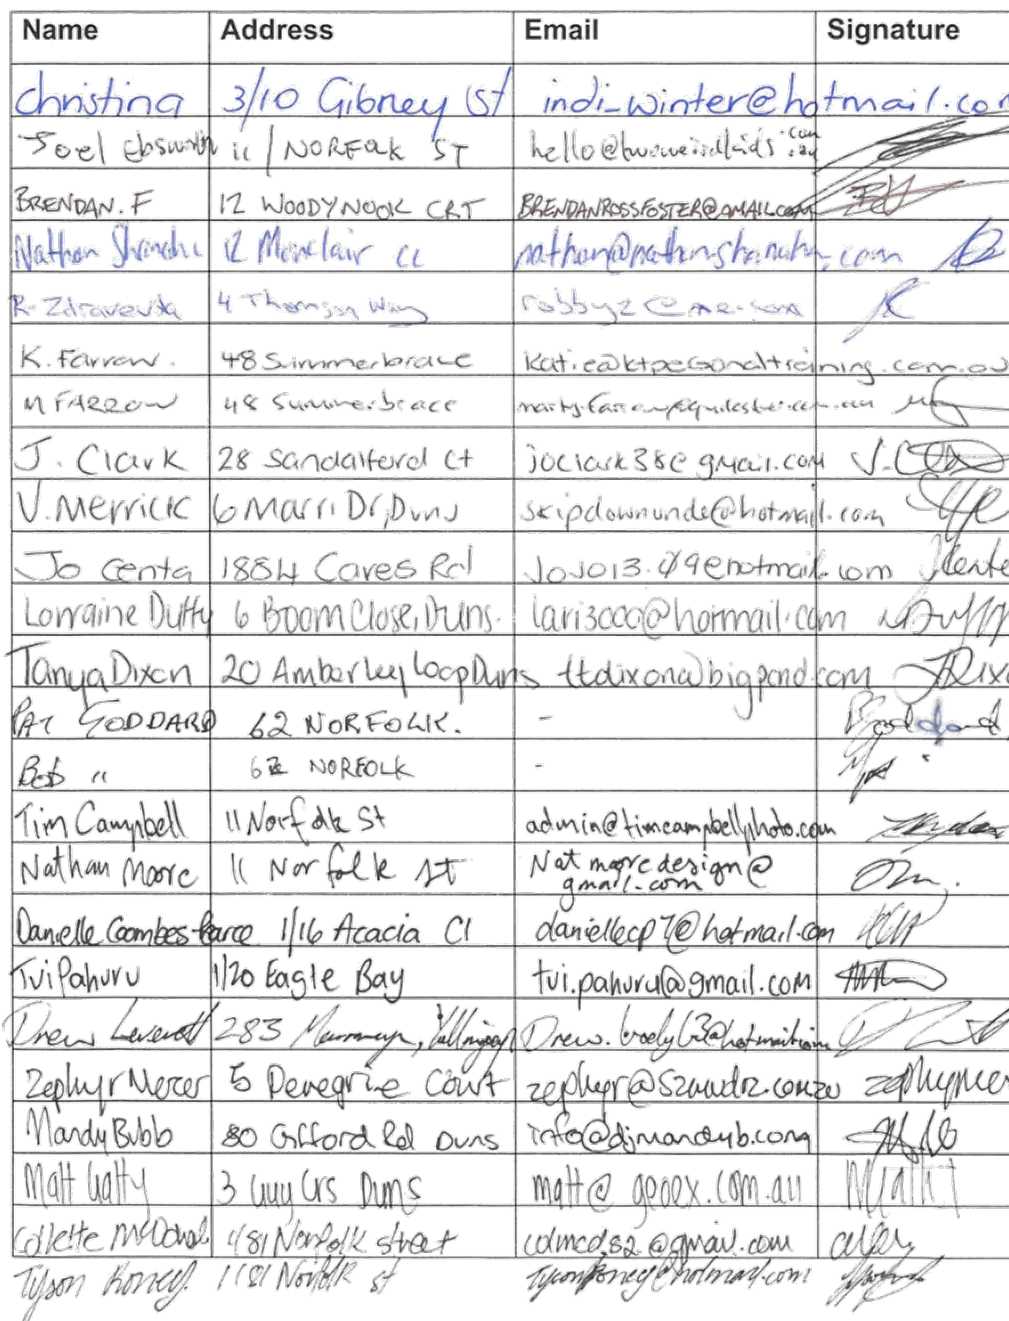 Name Address Email Signature
Christina 3/10 Gibney St indi_winter@hotmail.com
Joel Ebsworth 11/ NORFOLK ST hello@twoweirdkids.com
BRENDAN. F 12 WOODYNOOK CRT BRENDANROSSFOSTER@GMAIL.COM
Nathan 12 Monclair CL .com
R. Zdravevska 4 Thomson Way robbyz@me.com
K. Farrow. 48 Summerbrace katie@ktpersonaltraining.com.au
M FARROW 48 Summerbrace
J. Clark 28 Sandalford Ct joclark38@gmail.com J.
V. Merrick 6 Marri Dr, Duns skipdownunde@hotmail.com
Jo Centa 1884 Caves Rd JoJo13.49@hotmail.com
Lorraine Duffy 6 Boom Close, Duns. lari3000@hotmail.com
Tanya Dixon 20 Amberley Loop Duns ttdixon@bigpond.com
PAT GODDARD 62 NORFOLK. -
Bob " 62 NORFOLK -
Tim Campbell 11 Norfolk St admin@timcampbellphoto.com
Nathan Moore 11 Norfolk St Natmooredesign@
gmail.com
Danielle Coombes Pearce 1/16 Acacia Cl daniellecp7@hotmail.com
Tui Pahuru 1/20 Eagle Bay tui.pahuru@gmail.com
Drew 283
Zephyr Mercer 5 Peregrine Court
Mandy Bubb 80 Gifford Rd Duns info@djmandyb.com
Matt Gatty 3 Guy Crs Duns matt@geoex.com.au
Collette 4/81 Norfolk street colmcd.82@gmail.com
Tyson 1/81 Norfolk st